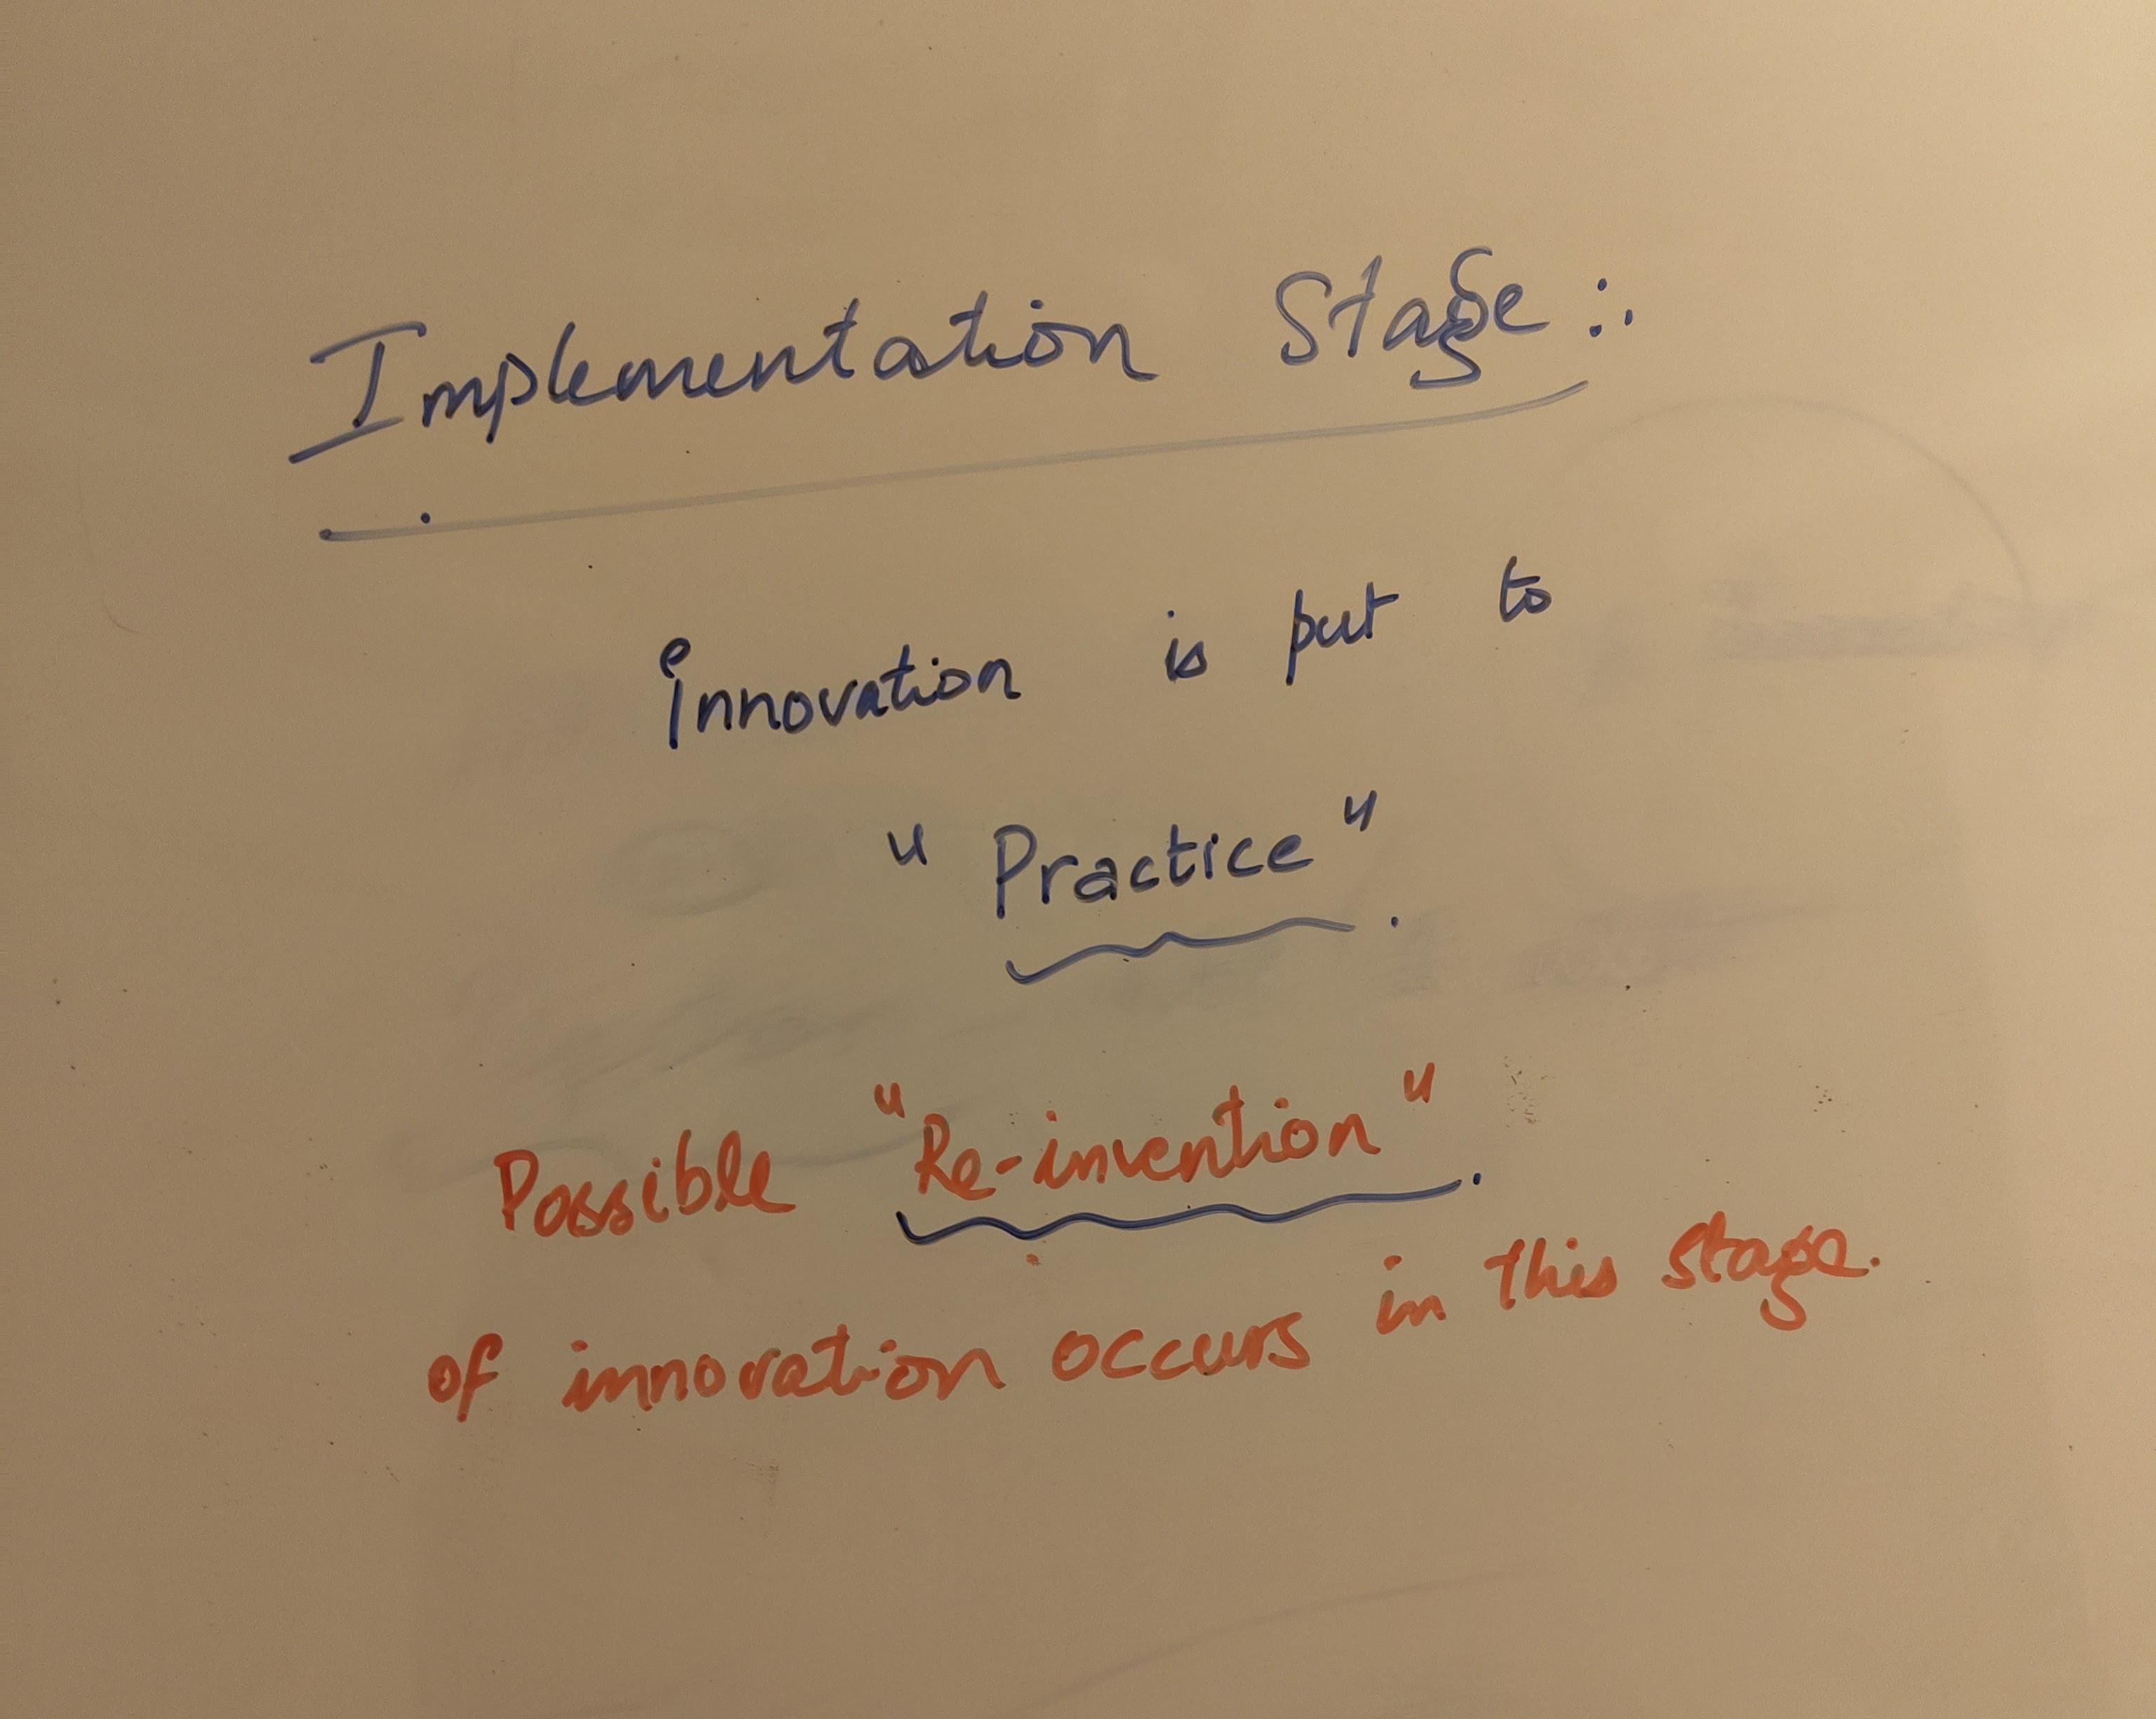 Implementation Stage :.
innovation is put to
"Practice".
Possible "Re-invention".
of innovation occurs in this stage.